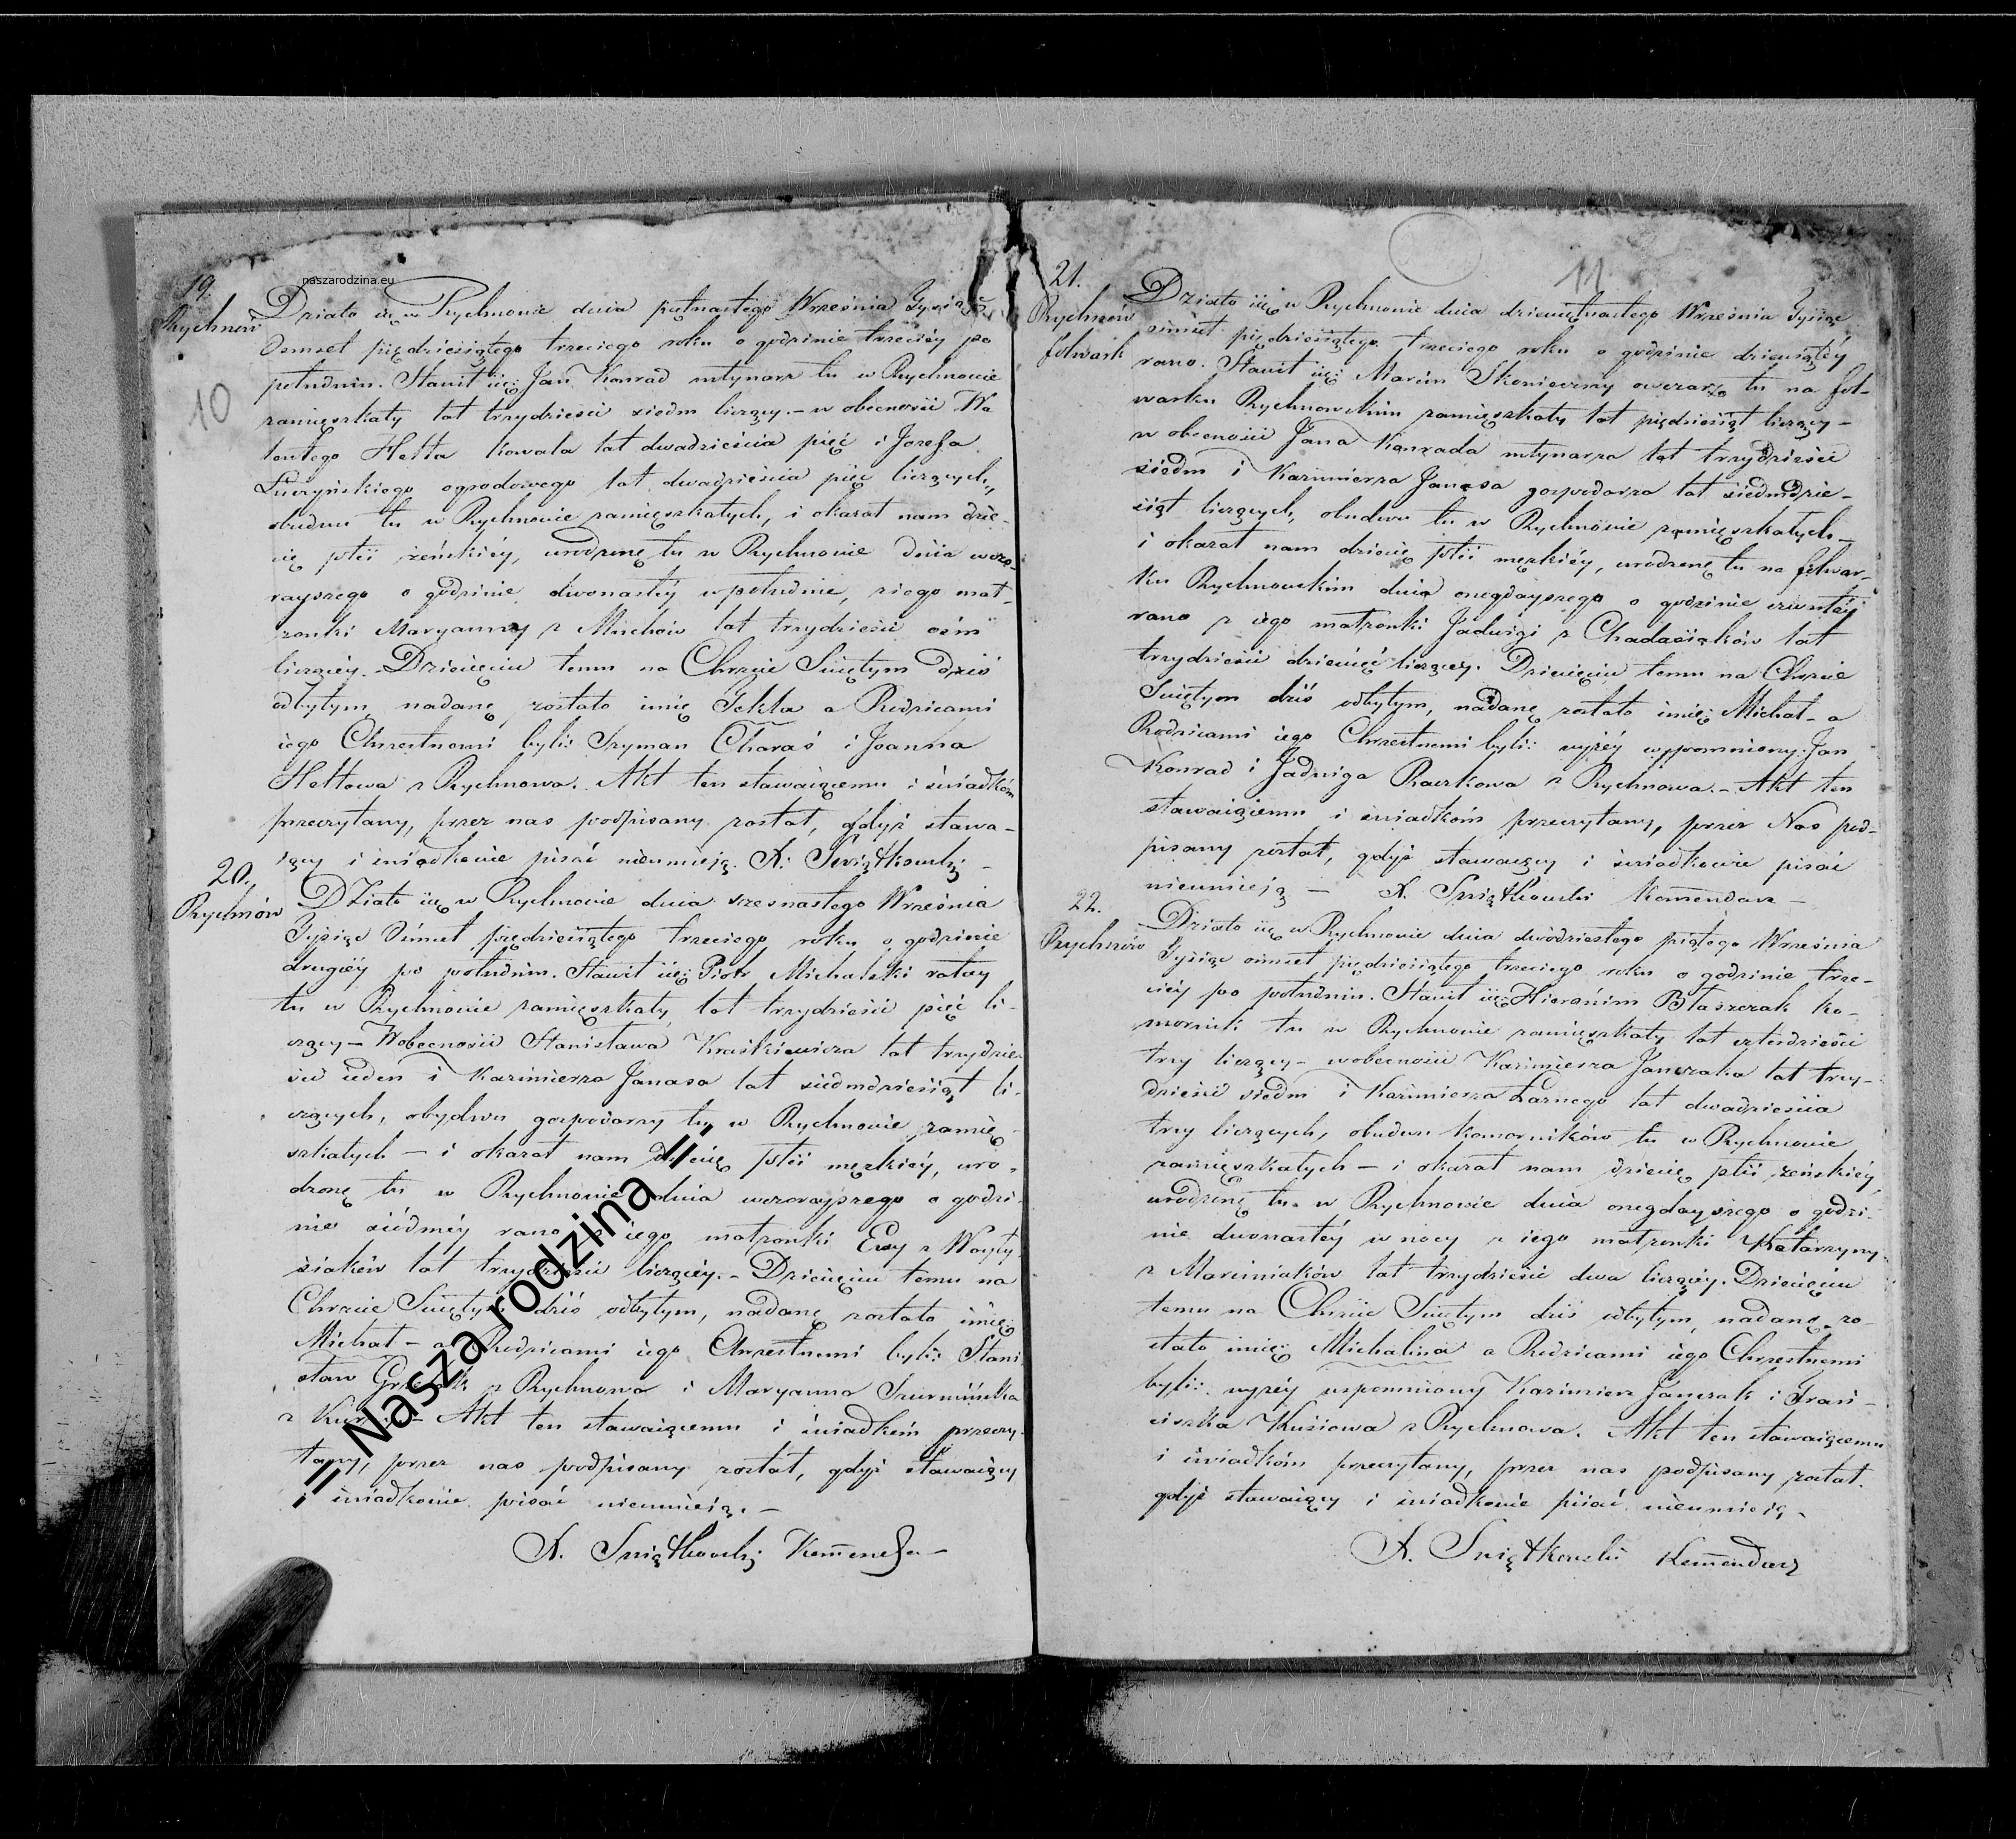 naszarodzina.eu
19.
Rychnów
10
Działo się w Rychnowie dnia piętnastego Września Tysiąc
Osmset pięćdziesiątego trzeciego roku o godzinie trzeciéy po
południu. Stawił się: Jan Konrad młynarz tu w Rychnowie
zamięszkały lat trzydzieści siedm liczący. – w obecności Wa
lentego Hetta kowala lat dwadzieścia pięć i Jozefa
ogrodowego lat dwadzieścia pięć liczących,
obudwu tu w Rychnowie zamięszkałych, i okazał nam dzie-
cię płci żeńskiéy, urodzonę tu w Rychnowie dnia wczo-
rayszego o godzinie dwonastéy w południe, z iego mał-
żonki Maryanny z Muchów lat trzydzieści ośm
liczącéy. – Dziecięciu temu na Chrzcie Świętym dziś
odbytym nadanę zostało imię Tekla a Rodzicami
iego Chrzestnemi byli: Szyman Charaś i Joanna
Hettowa z Rychnowa. Akt ten stawaiącemu i świadkóm
przeczytany, przez nas podpisany został, gdyż stawa-
iący i świadkowie pisać nieumieją. A: Świątkowski –
20.
Rychnów
Działo się w Rychnowie dnia szesnastego Września
Tysiąc Ośmset pięćdziesiątego trzeciego roku o godzinie
drugiéy po południu. Stawił się: Piotr Michalski rataj
tu w Rychnowie zamięszkały lat trzydzieści pięć li-
czący – W obecności Stanisława Kraśkiewicza lat trzydzie-
ści ieden i Kazimierza Janasa lat siedmdziesiąt li-
czących, obydwu gospodarzy tu w Rychnowie zamię-
szkałych – i okazał nam dziecię płci męzkiéy, uro-
dzonę tu w Rychnowie dnia wczorayszego o godzi-
nie siódméy rano z iego małżonki Ewy z Woyty-
siaków lat trzydzieści liczącéy. – Dziecięciu temu na
Chrzcie Świętym dziś odbytym, nadanę zostało imię:
Michał – a Rodzicami iego Chrzestnemi byli: Stani-
sław z Rychnowa i Maryanna
z Akt ten stawaiącemu i świadkóm przeczy-
tany, przez nas podpisany został, gdyż stawaiący
i świadkowie pisać nieumieią. –
A. Świątkowski Komenda –
// Nasza rodzina //
11
21.
Rychnów
folwark
Działo się w Rychnowie dnia dziewiętnastego Września Tysiąc
ośmset pięćdziesiątego trzeciego roku o godzinie dziewiątéy
rano. Stawił się: Marcin Skonieczny owczarz tu na fol-
warku Rychnowskim zamięszkały lat pięćdziesiąt liczący –
w obecności Jana Konrada młynarza lat trzydzieści
siedm i Kazimierza Janasa gospodarza lat siedmdzie-
siąt liczących, obudwu tu w Rychnowie zamięszkałych –
i okazał nam dziecię płci męzkiéy, urodzonę tu na folwar-
ku Rychnowskim dnia onegdayszego o godzinie czwartéy
rano z iego małżonki Jadwigi z Chadasiaków lat
trzydzieści dziewięć liczącey. Dziecięciu temu na Chrzcie
Świętym dziś odbytym, nadanę zostało imię: Michał – a
Rodzicami iego Chrzestnemi byli: wyżéy wspomniony: Jan
Konrad i Jadwiga Raczkowa z Rychnowa. – Akt ten
stawaiącemu i świadkóm przeczytany, przez Nas pod-
pisany został, gdyż stawaiący i świadkowie pisać
nieumieją – A. Świątkowski Komendarz –
22.
Rychnów
Działo się w Rychnowie dnia dwódziestego piątego Września
Tysiąc ośmset pięćdziesiątego trzeciego roku o godzinie trze-
ciéy po południu. Stawił się: Hieronim Błaszczak ko-
mornik tu w Rychnowie zamięszkały lat czterdzieści
trzy liczący – w obecności Kazimierza Janczaka lat trzy-
dzieści siedm i Kazimierza Łaznego lat dwadzieścia
trzy liczących, obudwu komorników tu w Rychnowie
zamięszkałych – i okazał nam dziecię płci żeńskiéy,
urodzonę tu w Rychnowie dnia onegdayszego o godzi-
nie dwonastéy w nocy z iego małżonki Katarzyny
z Marciniaków lat trzydzieści dwa liczącéy. Dziecięciu
temu na Chrzcie Świętym dziś odbytym, nadanę zo-
stało imię: Michalina a Rodzicami iego Chrzestnemi
byli: wyżéy wspomniony Kazimierz Janczak i Fran-
ciszka Kusiowa z Rychnowa. Akt ten stawaiącemu
i świadkóm przeczytany, przez nas podpisany został,
gdyż stawaiący i świadkowie pisać nieumieią. –
A. Świątkowski Komendarz